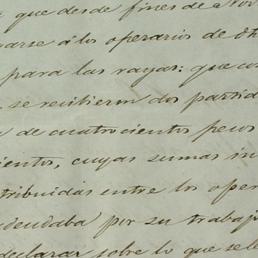 que desde fines de
arse á los operarios de
para las rayas: que
se recibieron dos partid
de cuatrocientos pesos
ientos, cuyas sumas in
tribuidas entre los oper
deudaba por su trabaj
declarar sobre lo que se le